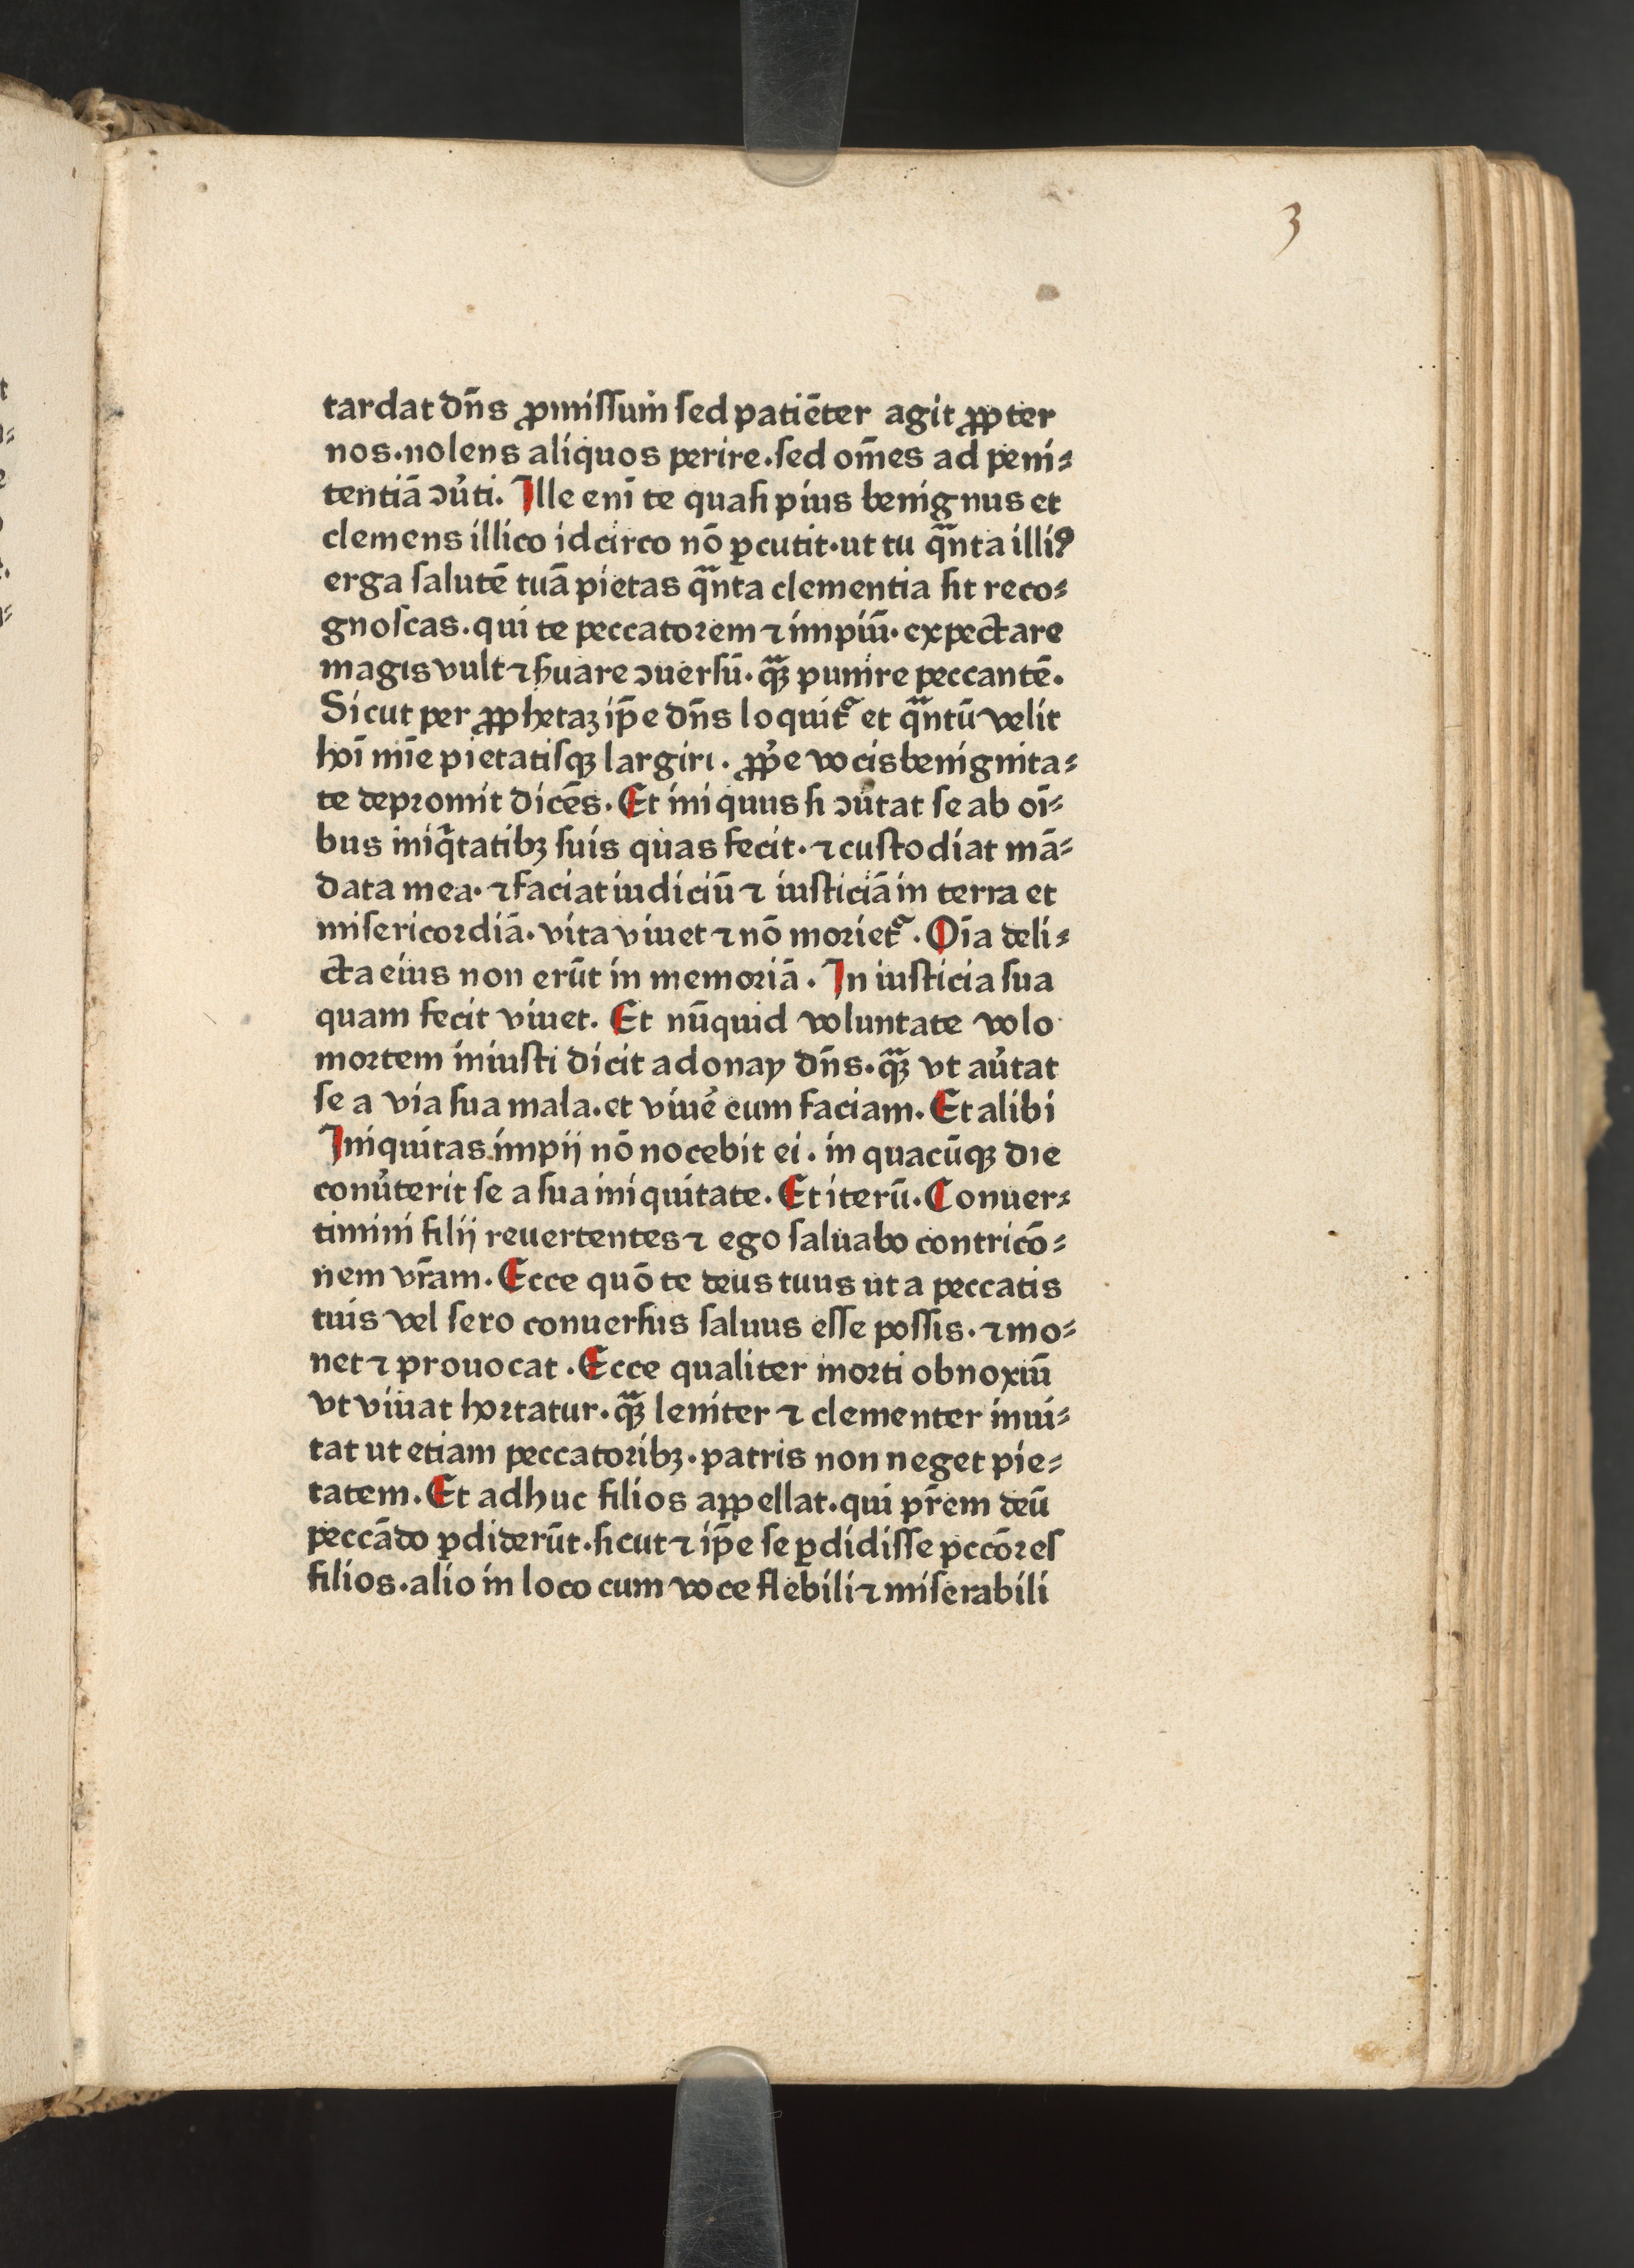 3
tardat dn̄s ꝓmissum̄ sed patiēter agit ꝓꝑter
nos·nolens aliquos perire·sed om̄es ad peni⸗
tentiā ↄu̓ti. Ille eni̅ te quasi pius benignus et
clemens illico idcirco nō ꝑcutit·ut tu qͣnta illiꝰ
erga salutē tuā pietas qͣnta clementia sit reco⸗
gnoscas·qui te peccatorem ⁊ impiū·expectare
magis vult ⁊ ẜuare ↄuersū·qͣꝫ punire peccantē.
Sicut per ꝓphetaꝫ ip̄e dn̄s loquit᷑ et qͣntū velit
hoī mīe pietatisqꝫ largiri. ꝓp̓e vocis benignita⸗
te depromit dicēs. Et iniquus si ↄu̓tat se ab oī⸗
bus iniqͥtatibꝫ suis quas fecit·⁊ custodiat mā⸗
data mea·⁊ faciat iudiciū ⁊ iusticiā in terra et
misericordiā·vita viuet ⁊ nō moriet᷑. Oīa deli⸗
cta eius non erūt in memoriā. In iusticia sua
quam fecit viuet. Et nūquid voluntate volo
mortem iniusti dicit adonay dn̄s·qͣꝫ vt au̓tat
se a via sua mala·et viue̓ eum faciam. Et alibi
Iniquitas impij nō nocebit ei·in quacūqꝫ die
conu̓terit se a sua iniquitate. Et iterū. Conuer⸗
timini filij reuertentes ⁊ ego saluabo contricō⸗
nem vr̄am. Ecce quō te deus tuus ut a peccatis
tuis vel sero conuersus saluus esse possis·⁊ mo⸗
net ⁊ prouocat. Ecce qualiter morti obnoxiū
vt viuat hortatur·qͣꝫ leniter ⁊ clementer inui⸗
tat ut etiam peccatoribꝫ·patris non neget pie⸗
tatem. Et adhuc filios appellat·qui pr̄em deū
peccādo ꝑdiderūt·sicut ⁊ ip̄e se ꝑdidisse pccōres
filios·alio in loco cum voce flebili ⁊ miserabili